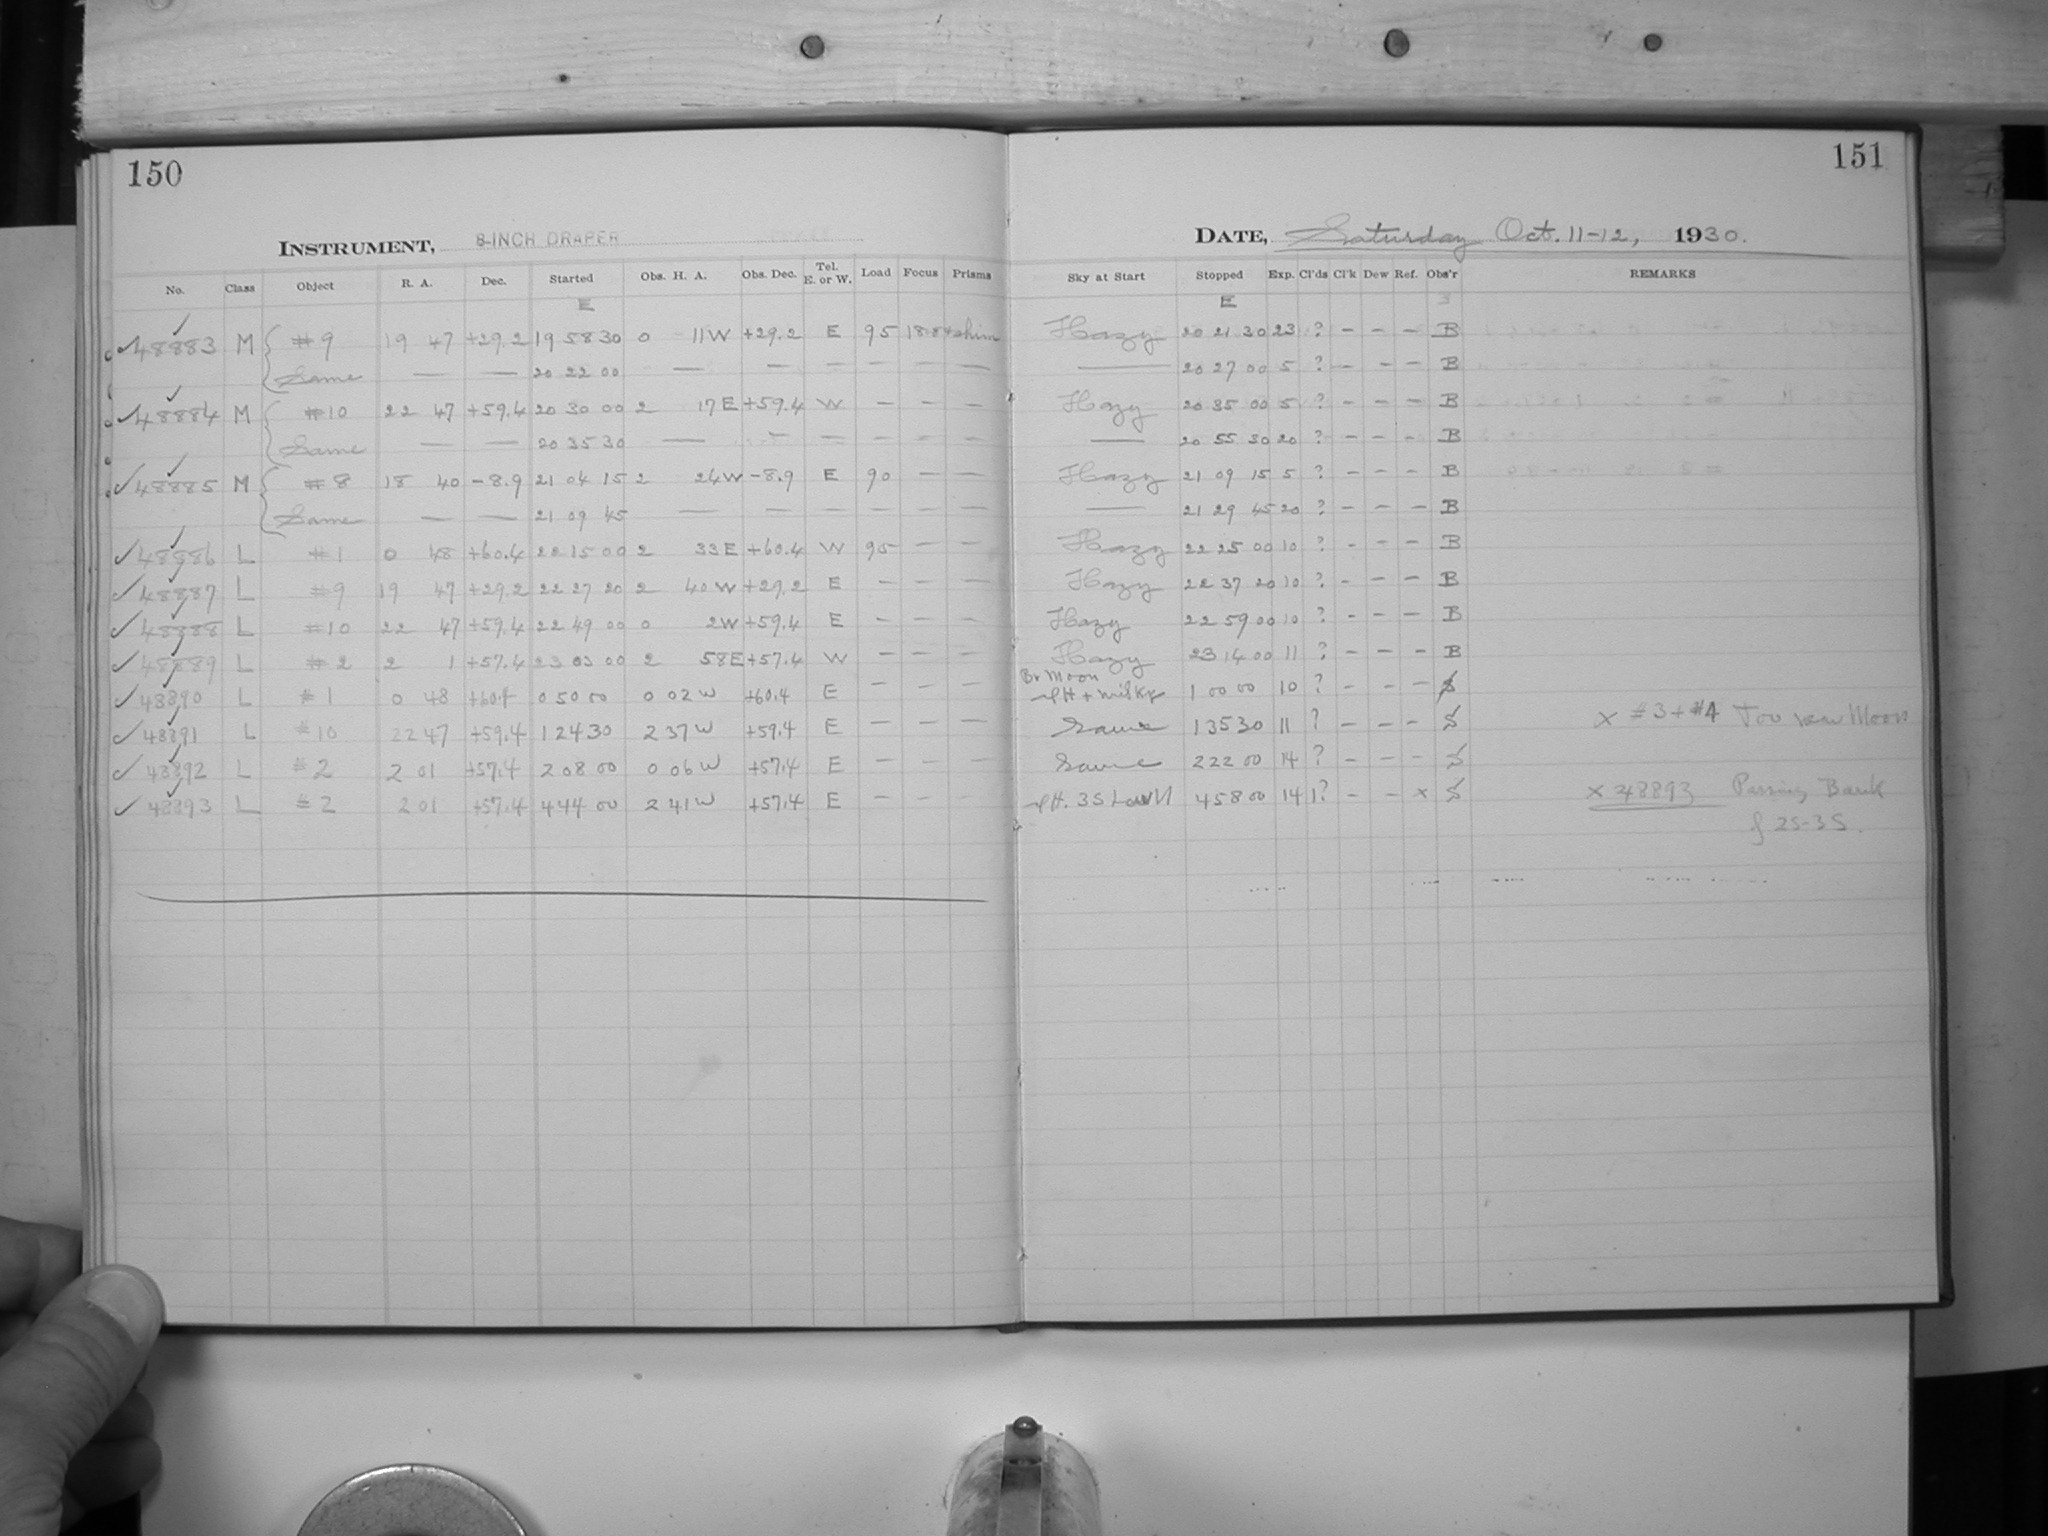 150
INSTRUMENT, 8-INCH DRAPER
No. Class Object R. A. Dec. Started Obs. H. A. Obs. Dec. Tel. E. or W. Load Focus Prisms
E
✓48883 M #9 19 47 +29.2 19 58 30 0 11W +29.2 E 95 shim
Same — — 20 22 00 — — — — — —
✓48884 M #10 22 47 +59.4 20 30 00 2 17E +59.4 W — — —
Same — — 20 35 30 — — — — — —
✓48885 M #8 18 40 -8.9 21 04 15 2 24W -8.9 E 90 — —
Same — — 21 09 45 — — — — — —
✓48886 L #1 0 48 +60.4 22 15 00 2 33E +60.4 W 95 — —
✓48887 L #9 19 47 +29.2 22 27 20 2 40W +29.2 E — — —
✓48888 L #10 22 47 +59.4 22 49 00 0 2W +59.4 E — — —
✓48889 L #2 2 1 +57.4 23 03 00 2 58E +57.4 W — — —
✓48890 L #1 0 48 +60.4 0 50 00 0 02W +60.4 E — — —
✓48891 L #10 22 47 +59.4 1 24 30 2 37W +59.4 E — — —
✓48892 L #2 2 01 +57.4 2 08 00 0 06W +57.4 E — — —
✓48893 L #2 2 01 +57.4 4 44 00 2 41W +57.4 E — — —
151
DATE, Saturday Oct. 11-12, 1930.
Sky at Start Stopped Exp. Cl'ds Cl'k Dew Ref. Obs'r REMARKS
E
Hazy 20 21 30 23 ? — — — B
— 20 27 00 5 ? — — — B
Hazy 20 35 00 5 ? — — — B
— 20 55 30 20 ? — — — B
Hazy 21 09 15 5 ? — — — B
— 21 29 45 20 ? — — — B
Hazy 22 25 00 10 ? — — — B
Hazy 22 37 20 10 ? — — — B
Hazy 22 59 00 10 ? — — — B
Hazy 23 14 00 11 ? — — — B
Br Moon
+ milky 1 00 00 10 ? — — — S
Same 1 35 30 11 ? — — — S x #3 + #4 Too near Moon
Same 2 22 00 14 ? — — — S
3S Low N 4 58 00 14 1? — — x S x 48893 Passing Bank
of 2S-3S.